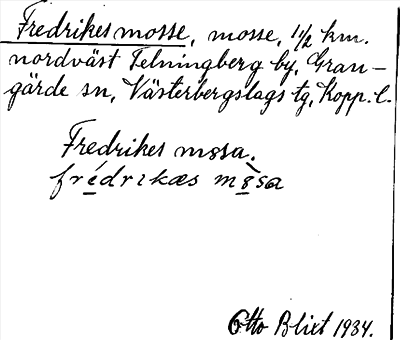 Fredrikes mosse, mosse, 1 1/2 km.
nordväst Telningberg by, Gran-
gärde sn, Västerbergslags tg, Kopp. l.
Fredrikes mossa.
frédrıkæs mòsa
Otto Blixt 1934.